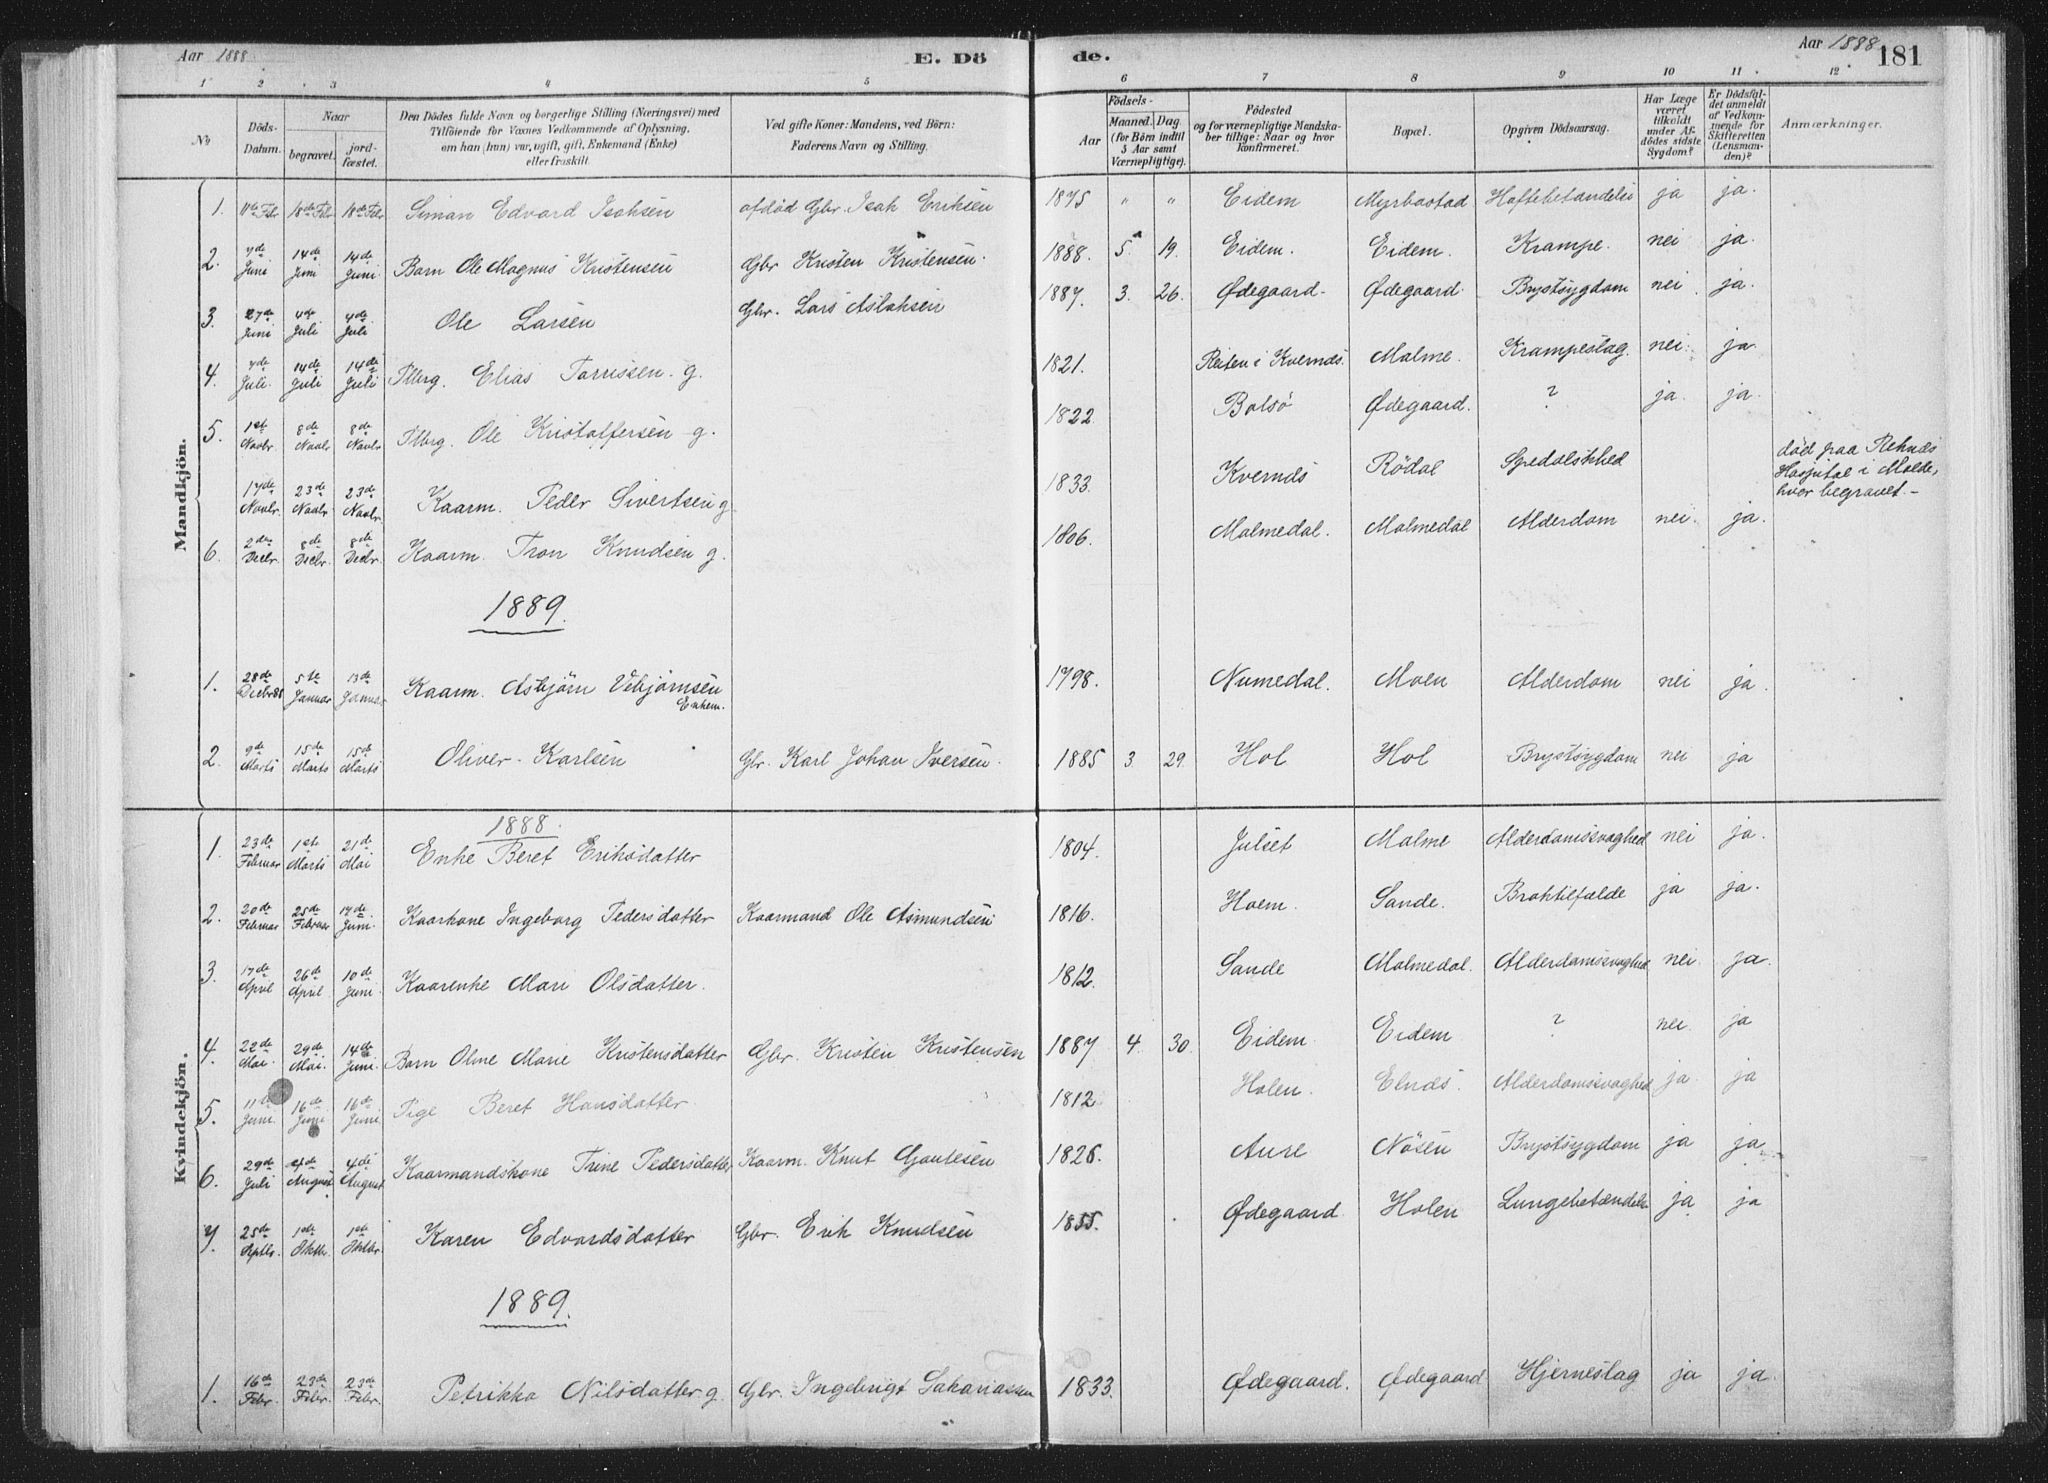 Aar 1888 E. Dö de. Aar 1888 181
1 2 3 4 5 6 7 8 9 10 11 12
No Döds-Datum. Naar begravet. jordfæstet. Den Dödes fulde Navn og borgerlige Stilling (Næringsvei) med Tilföiende for Voxnes Vedkommende af Oplysning, om han (hun) var ugift, gift, Enkemand (Enke) eller fraskilt. Ved gifte Koner: Mandens, ved Börn: Faderens Navn og Stilling. Födsels- Aar Maaned. Dag (for Börn indtil 5 Aar samt Værnepligtige). Födested og for værnepligtige Mandskaber tillige: Naar og hvor konfirmeret. Bopæl. Opgiven Dödsaarsag. Har Læge været tilkaldt under Afdödes sidste Sygdom? Er Dödsfaldet anmeldt af Vedkommende for Skifteretten (Lensmanden)? Anmærkninger.
Mandkjön.
1. 11te Febr 18de Febr 18de Febr Siman Edvard Isaksen afdöd Gbr. Isak Eriksen 1875 " " Eidem Myrbostad Hoftebetændelse ja ja.
2. 7de Juni 14de Juni 14de Juni Barn Ole Magnus Kristensen Gbr Kristen Kristensen. 1888. 5 19. Eidem. Eidem. Krampe. nei ja.
3. 27de Juni 4de Juli 4de Juli Ole Larsen Gbr. Lars Aslaksen 1887. 3. 26. Ødegaard. Ødegaard. Brystsygdom nei ja.
4. 7de Juli. 14de Juli 14de Juli Flbrg. Elias Tarrissen g. 1821. Reiten i Kvernds. Malme. Krampeslag. nei. ja.
5. 1ste Novbr 8de Novbr 8de Novbr Flbrg. Ole Kristoffersen g. 1822 Bolsö Ødegaard. ? ja. ja.
17de Novbr. 23de Novbr. 23de Novbr. Kaarm. Peder Sivertsen g. 1833. Kvernds Rödal Spedalskhed död paa Reknæs Hospital i Molde, hvor begravet.-
6. 2den Decbr. 8de Decbr. 8de Decbr. Kaarm. Tron Knudsen g. 1806. Malmedal. Malmedal Alderdom nei. ja.
1889.
1. 28de Decbr 88 5te Januar 13de Januar Kaarm. Asbjörn Vebjörnsen Enkem. 1798. Numedal. Moen Alderdom nei ja.
2. 9de Marts 15de Marts 15de Marts Oliver Karlsen Gbr. Karl Johan Iversen. 1885 3. 29. Hol Hol Brystsygdom nei ja
Kvindekjön.
1888.
1. 23de Februar 1ste Marts 21de Mai Enke Beret Eriksdatter 1804. Julset Malme Alderdomssvaghed nei ja.
2. 20de Februar 25de Februar 17de Juni. Kaarkone Ingeborg Pedersdatter Kaarmand Ole Asmundsen 1816. Hoem. Sande. Broktilfælde ja ja.
3. 17de April 26de April 10de Juni. Kaarenke Mari Olsdatter. 1812. Sande Malmedal. Alderdomssvaghed nei. ja.
4. 22de Mai. 29de Mai. 14de Juni. Barn Oline Marie Kristensdatter Gbr. Kristen Kristensen 1887 4. 30. Eidem Eidem ? nei. ja
5. 11te Juni. 16de Juni 16de Juni Pige Beret Hansdatter. 1812 Holen. Elnds. Alderdomssvaghed ja. ja
6. 29de Juli 4de August 4de August Kaarmandskone Trine Pedersdatter Kaarm. Knut Gautesen 1826. Aure Nösen Brystsygdom ja ja
7. 25de Septbr. 1ste Oktbr. 1ste Oktbr Karen Edvardsdatter Gbr. Erik Knudsen 1855. Ødegaard Holen Lungebetændelse ja ja
1889.
1. 16de Febr. 23de Febr. 23de Febr. Petrikka Nilsdatter g. Gbr. Ingebrigt Sakariassen 1833. Ødegaard. Ødegaard Hjerneslag ja ja.